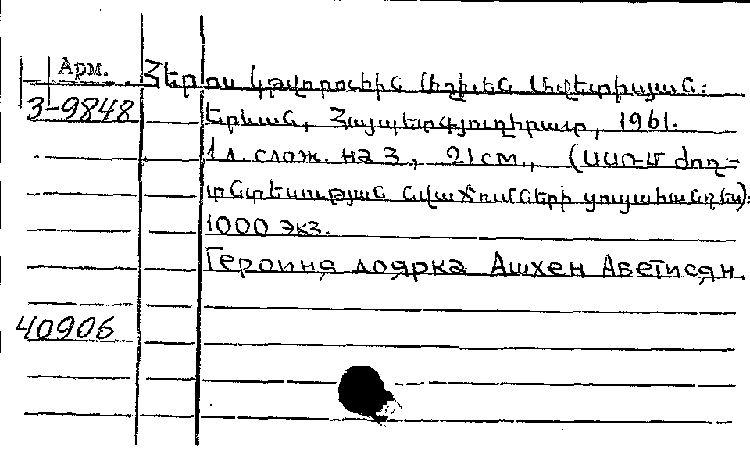 Арм. Հերոս կթվորուհին Աշխեն Ավետիսյան:
3-9848 Երևան, Հայպետգյուղհրատ, 1961.
1 л. слож. на 3, 21 см., (ՍՍՌՄ ժող-
տնտեսության նվաճումների ցուցահանդես):
1000 экз.
Героиня доярка Ашхен Аветисян.
40906